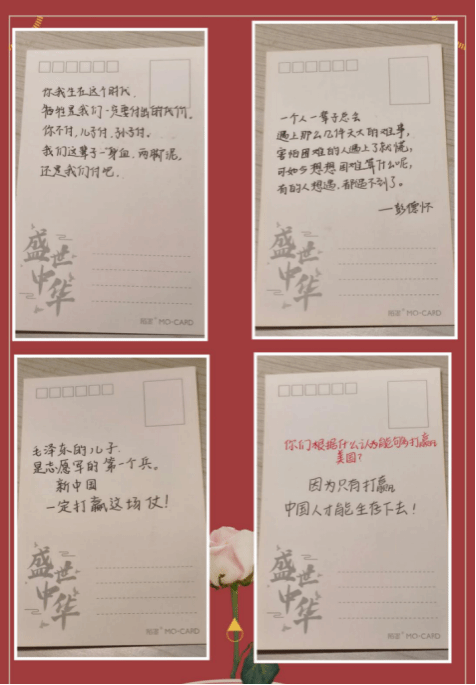 你我生在这个时代，
牺牲是我们一定要付出的代价。
你不付，儿子付，孙子付。
我们这辈子一身血，两脚泥，
还是我们付吧。
盛世
中华
MO·CARD
一个人一辈子总会
遇上那么几件天大的难事，
害怕困难的人遇上了就慌，
可如今想想困难算什么呢，
有的人想遇，都遇不到了。
——彭德怀
盛世
中华
MO·CARD
毛泽东的儿子
是志愿军的第一个兵。
新中国
一定打赢这场仗！
盛世
中华
MO·CARD
你们根据什么认为能够打赢
美国？
因为只有打赢
中国人才能生存下去！
盛世
中华
MO·CARD